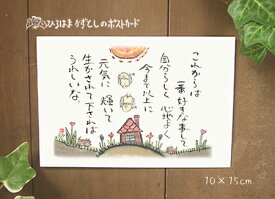 ひろはまかずとしのポストカード
これからは
一番好きな事して
自分らしく心地よく
今まで以上に
元気に輝いて
生かされて下されば
うれしいな。
10×15cm